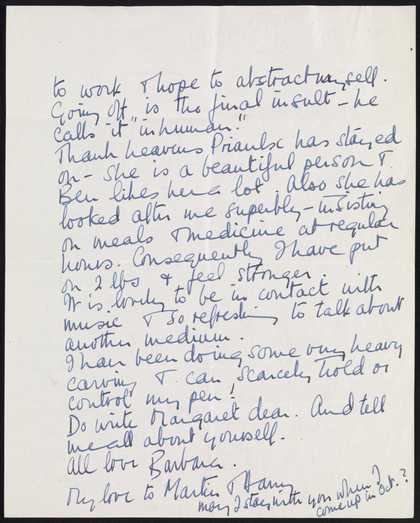 to work & hope to abstract myself.
Going off is the final insult – he
calls it "inhuman."
Thank heavens Priaulx has stayed
on – she is a beautiful person &
Ben likes her a lot. Also she has
looked after me superbly – insisting
on meals & medicine at regular
hours. Consequently I have put
on 2 lbs & feel stronger.
It is lovely to be in contact with
music & so refreshing to talk about
another medium.
I have been doing some very heavy
carving & can scarcely hold or
control my pen!
Do write Margaret dear. And tell
me all about yourself.
All love Barbara.
My love to Martin & Harry
may I stay with you when I
come up in Oct.?